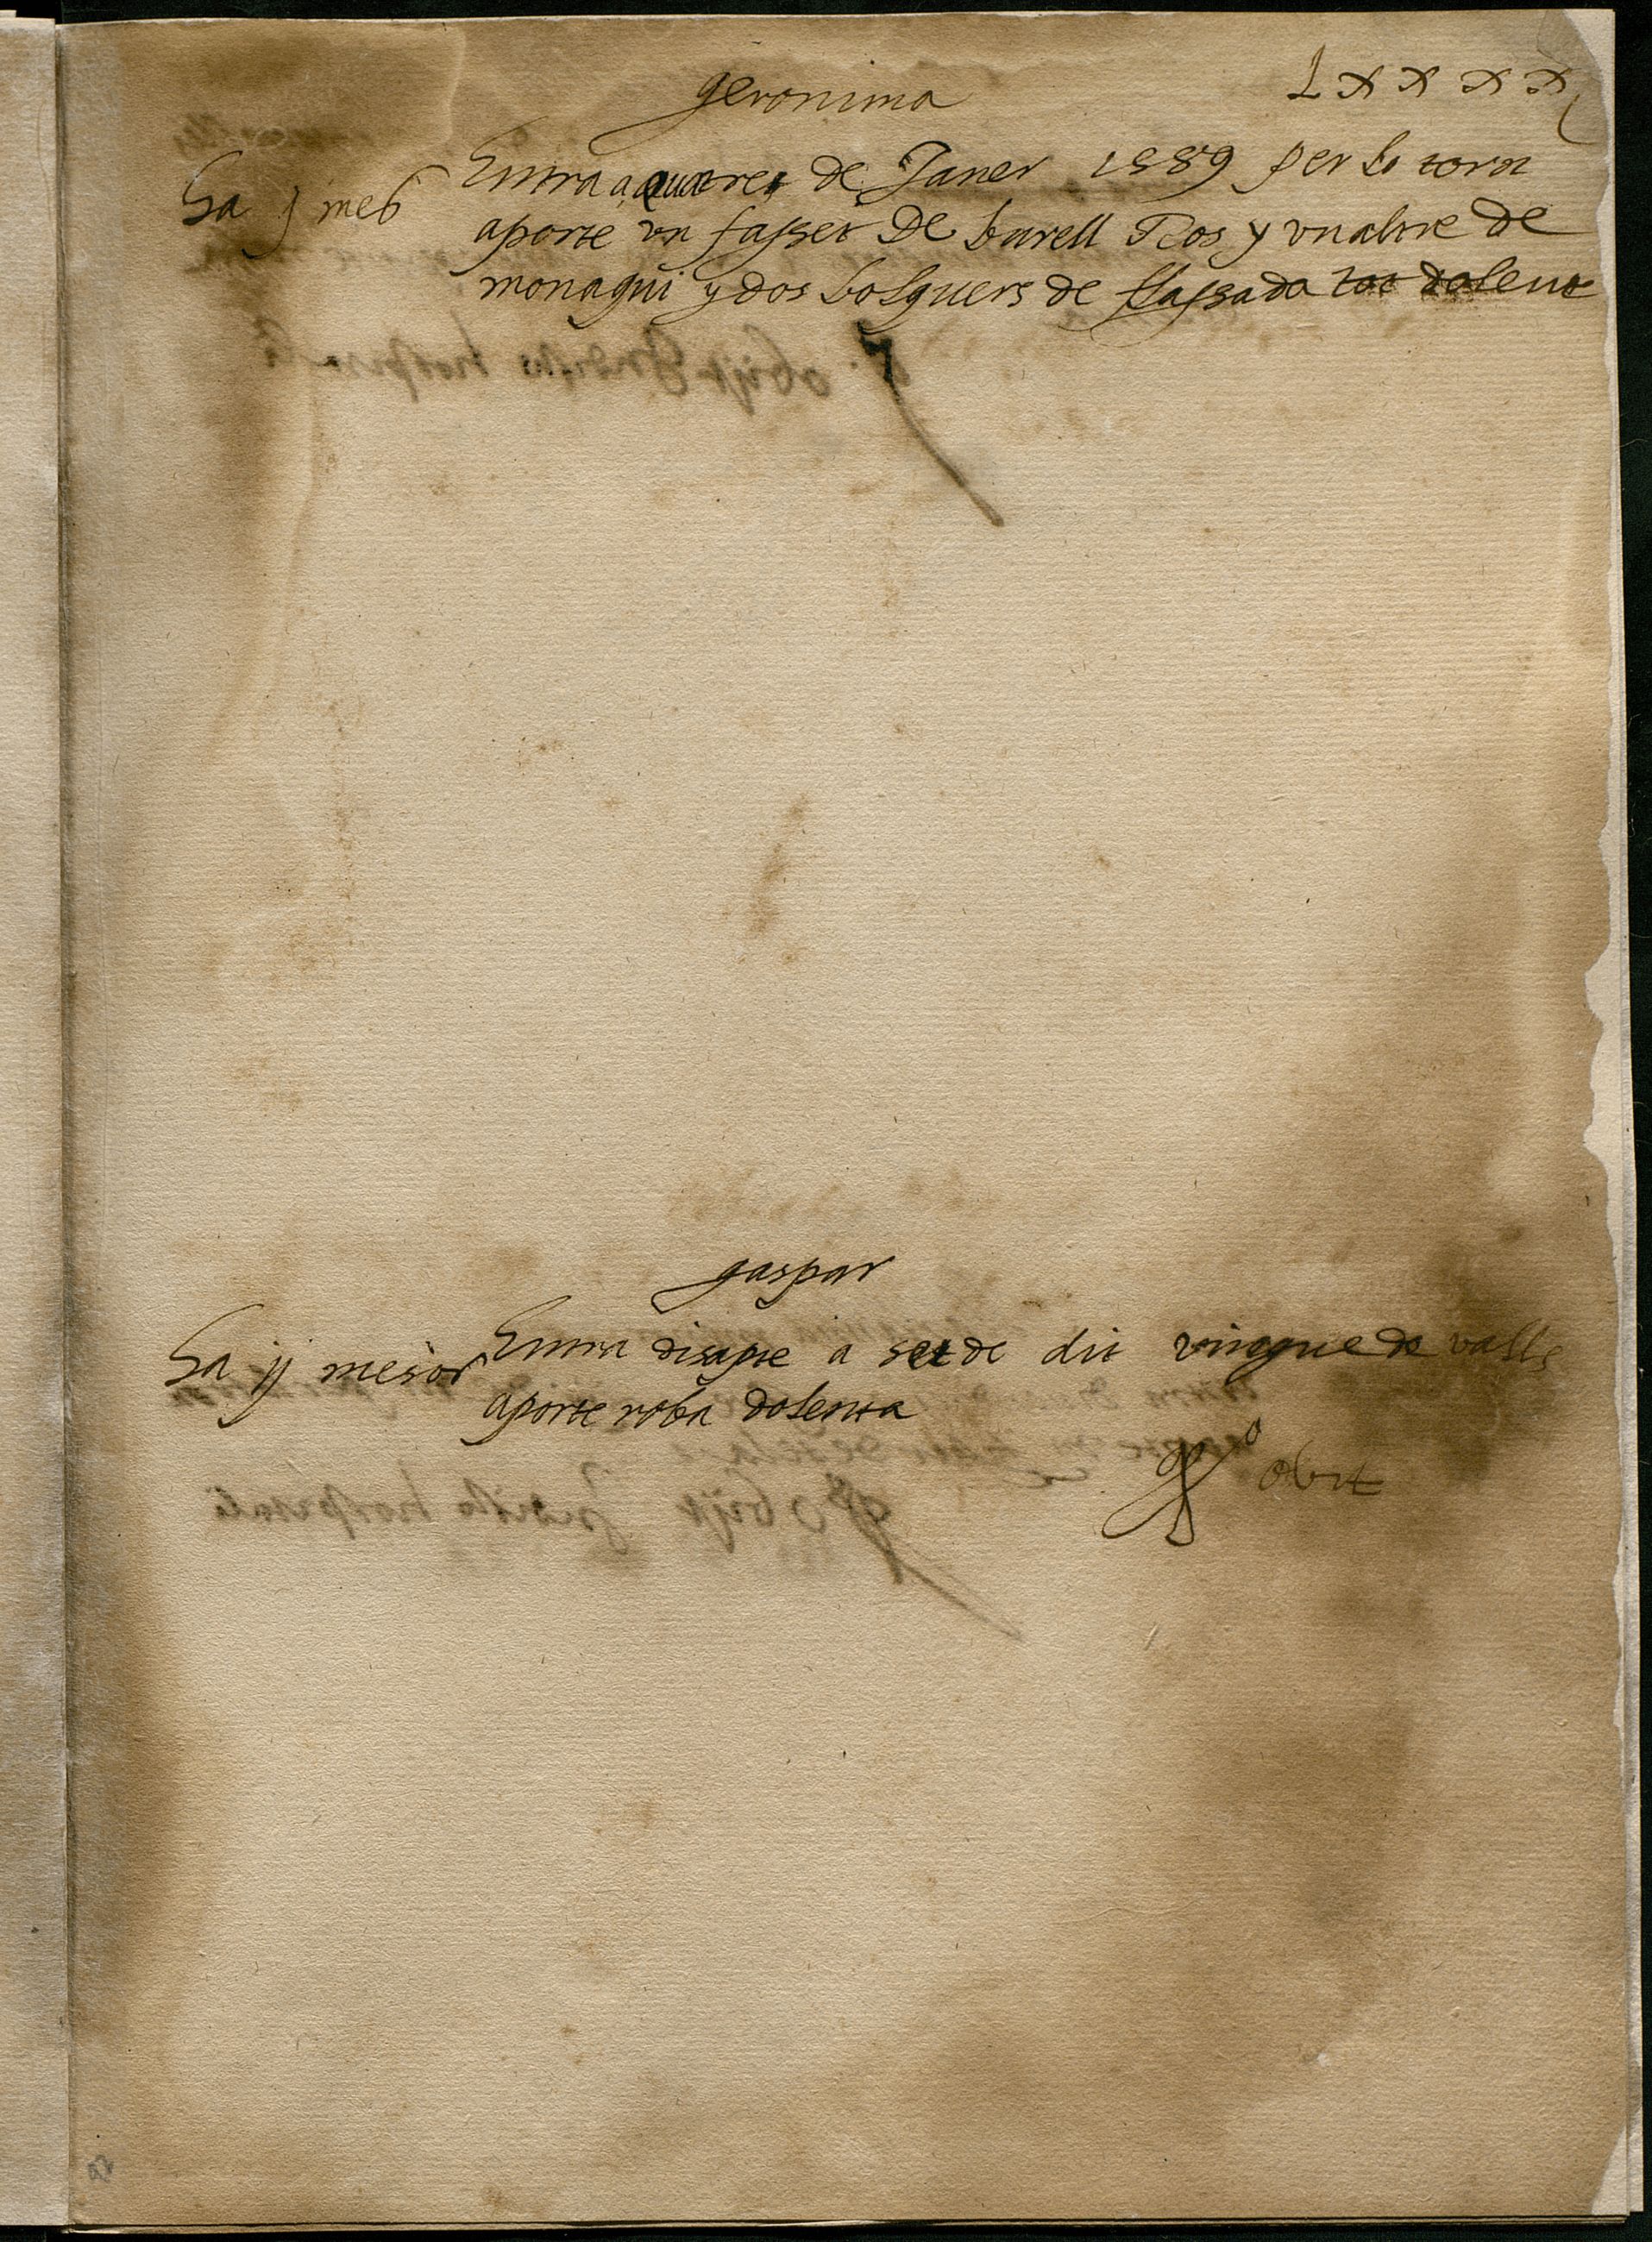 Lxxxx
geronima
ha j mes
Entra a quatre de Janer 1589 per lo torn
aporte vn fasset De burell Ros y vnaltre de
monaqui y dos bolquers de flassada tot dolent
gaspar
ha ij mesos
Entra disapte a set de dit vingue de valls
aporte roba dolenta
obit